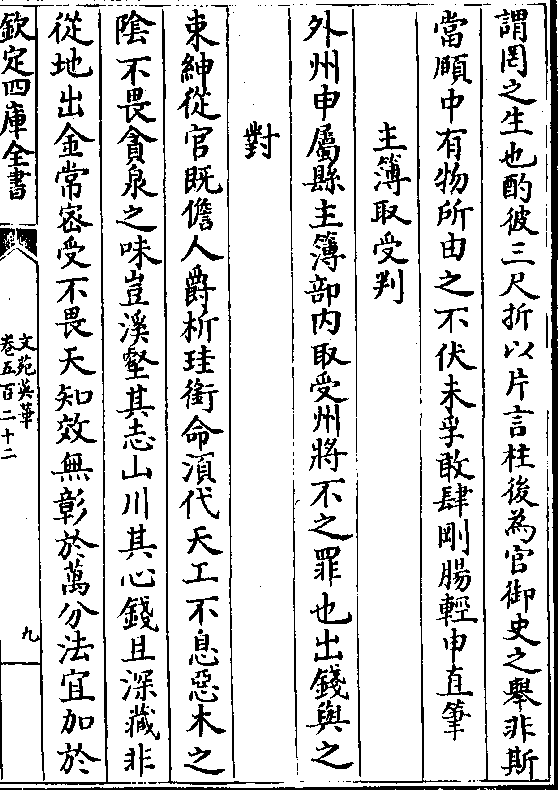 謂罔之生也酌彼三尺折以片言柱後為官御史之舉非斯
當頤中有物所由之不伏未孚敢肆剛腸輕申直筆
主簿取受判
外州申屬縣主簿部内取受州將不之罪也出錢與之
對
束紳從官既儋人爵析珪銜命湏代天工不息惡木之
陰不畏貪泉之味豈溪壑其志山川其心錢且深藏非
從地出金常宻受不畏天知效無彰於萬分法宜加於
欽定四庫全書
文苑英華
卷五百二十二
九